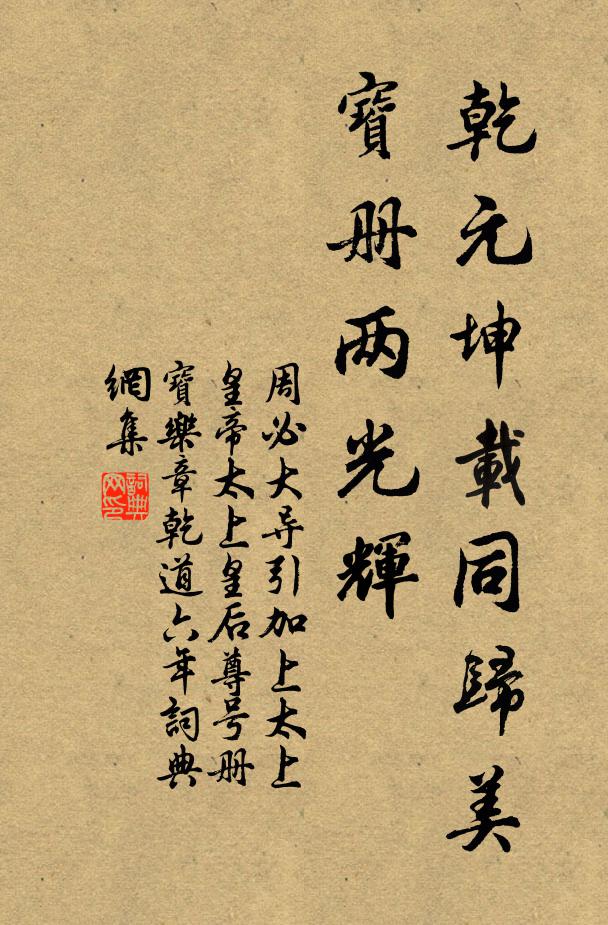 乾元坤載同歸美
寶册两光輝
周必大导引加上太上
皇帝太上皇后尊号册
寶樂章乾道六年詞典
網集
詞典
网印